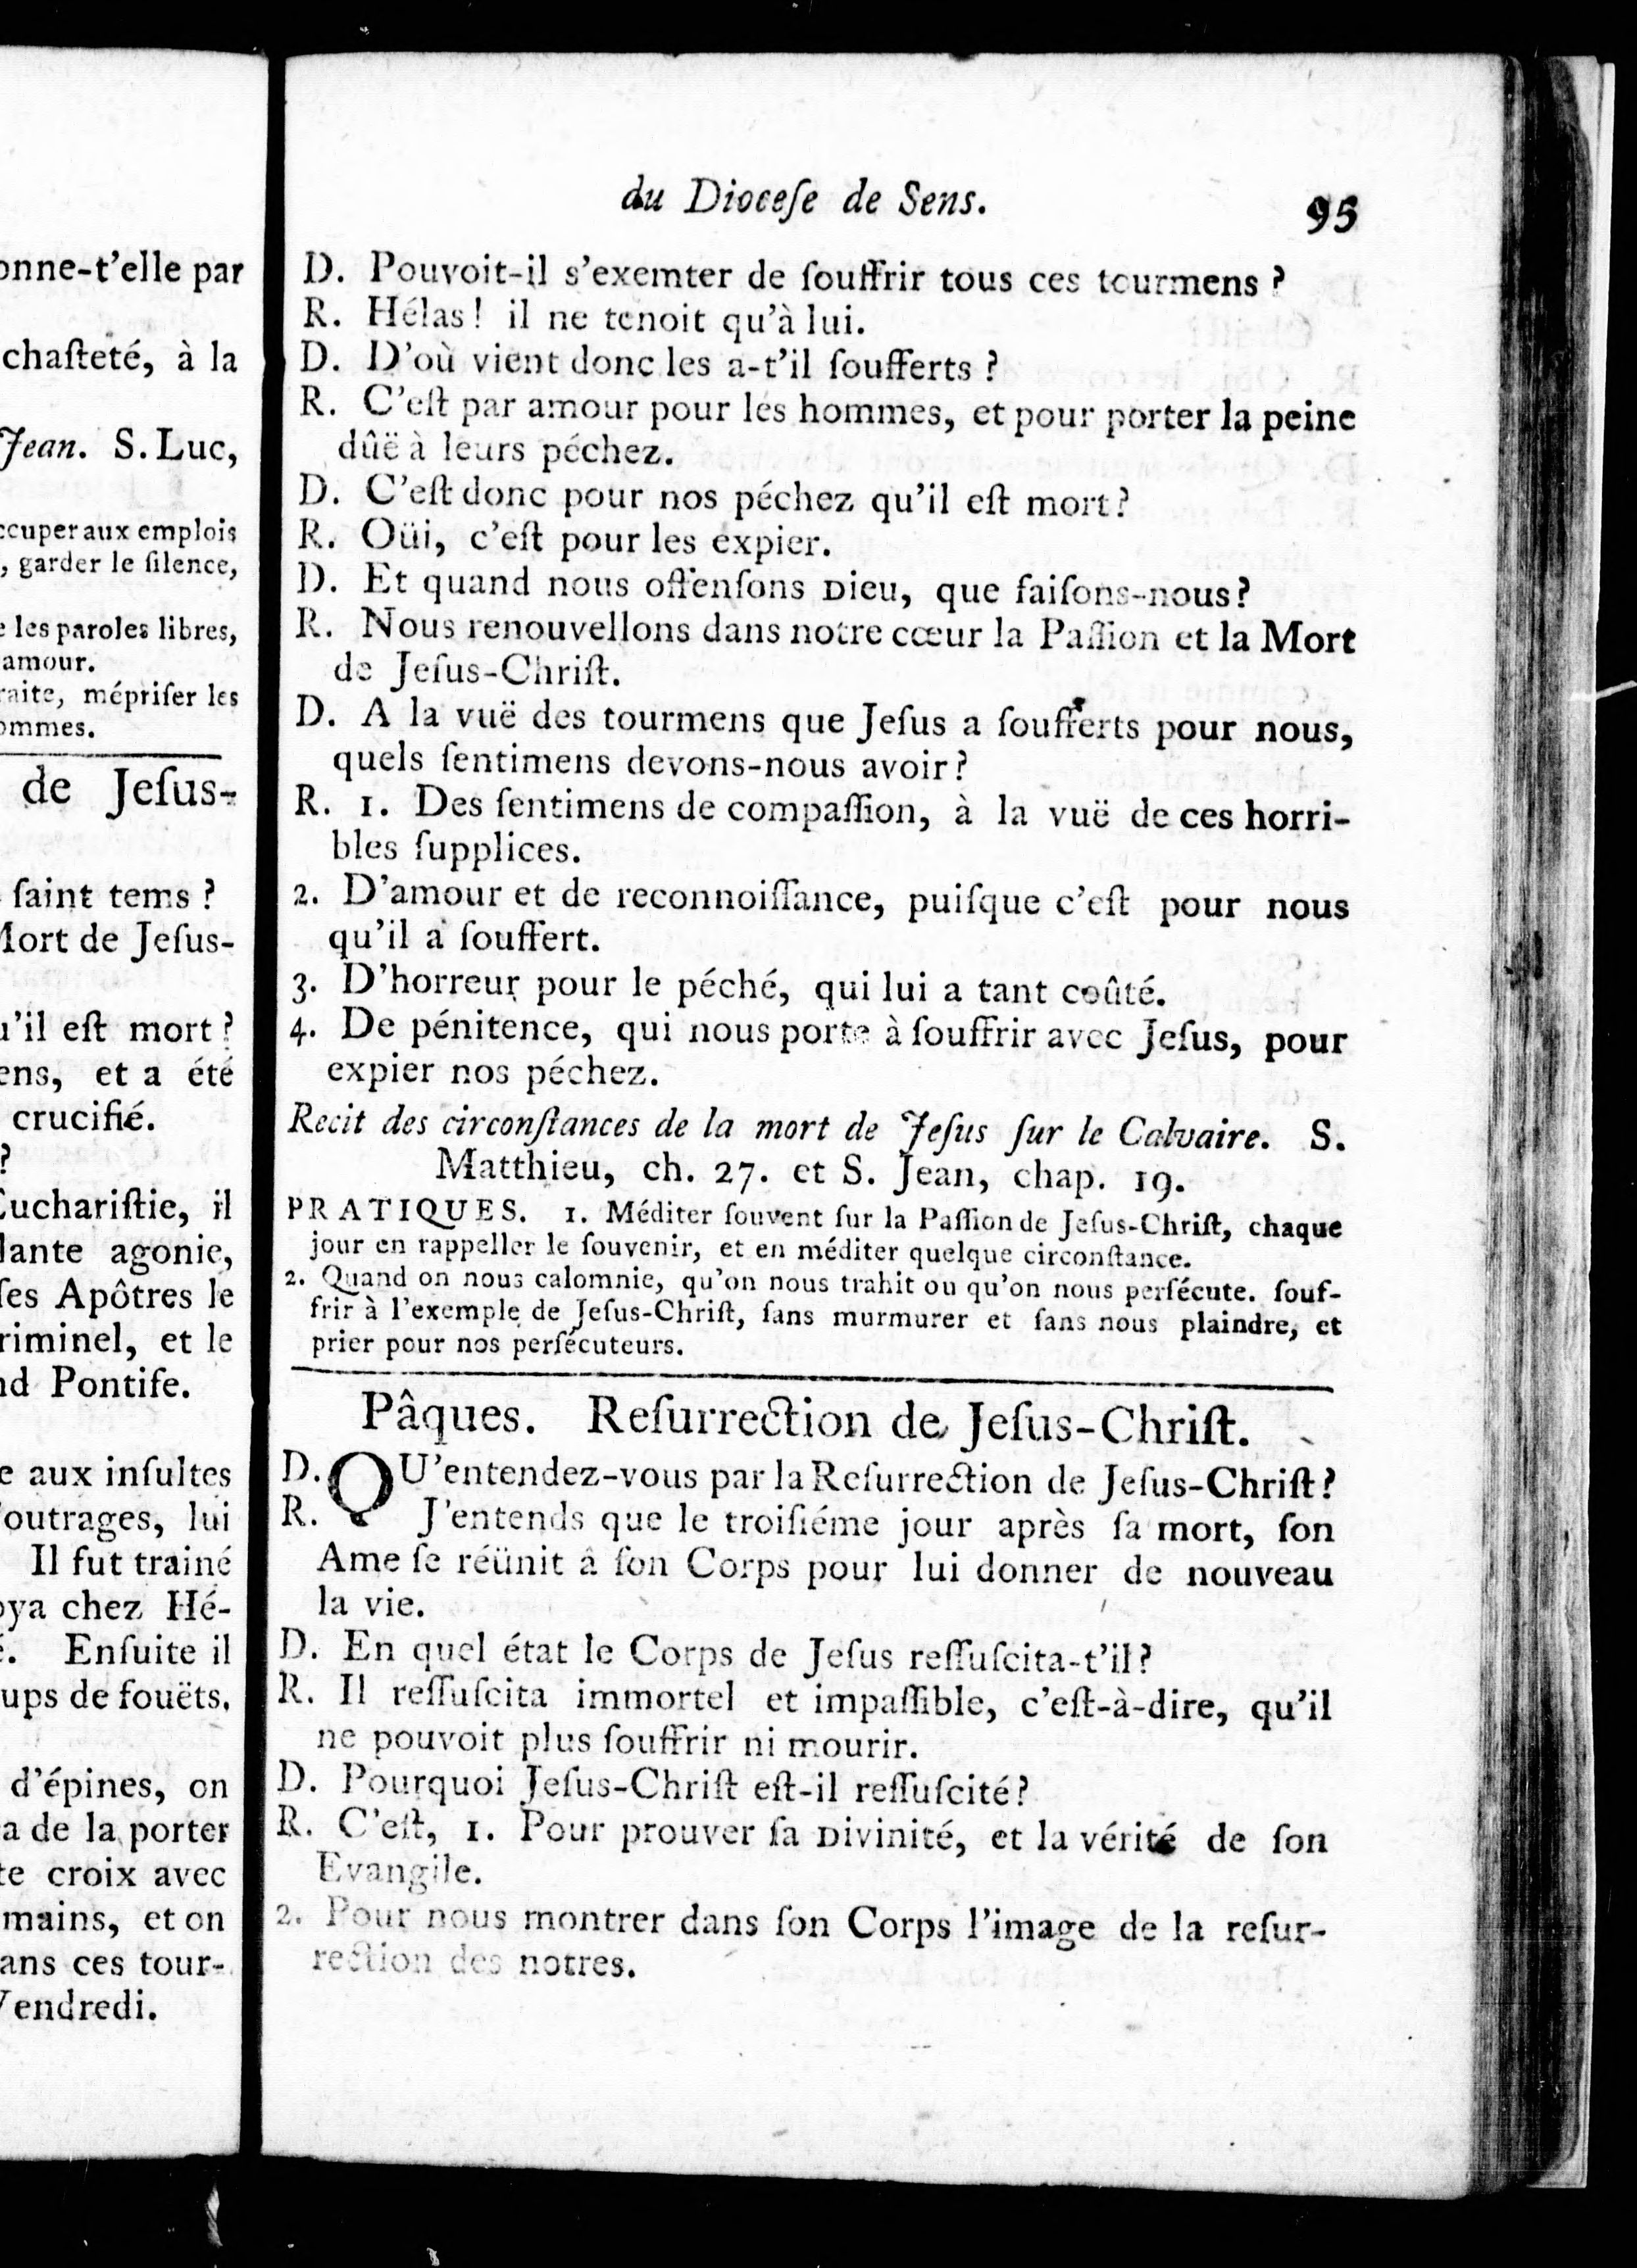 onne-t'elle par
chaſteté, à la
Jean. S. Luc,
ccuper aux emplois
, garder le ſilence,
e les paroles libres,
amour.
raite, mépriſer les
ommes.
de Jeſus-
ſaint tems ?
Mort de Jeſus-
u'il eſt mort ?
ens, et a été
crucifié.
?
Euchariſtie, il
lante agonie,
ſes Apôtres le
riminel, et le
nd Pontife.
e aux inſultes
'outrages, lui
Il fut trainé
oya chez Hé-
é. Enſuite il
ups de fouëts.
d'épines, on
a de la porter
te croix avec
mains, et on
ans ces tour-
Vendredi.
du Dioceſe de Sens. 95
D. Pouvoit-il s'exemter de ſouffrir tous ces tourmens ?
R. Hélas ! il ne tenoit qu'à lui.
D. D'où vient donc les a-t'il ſoufferts ?
R. C'eſt par amour pour les hommes, et pour porter la peine
dûë à leurs péchez.
D. C'eſt donc pour nos péchez qu'il eſt mort ?
R. Oüi, c'eſt pour les expier.
D. Et quand nous offenſons Dieu, que faiſons-nous ?
R. Nous renouvellons dans notre cœur la Paſſion et la Mort
de Jeſus-Chriſt.
D. A la vuë des tourmens que Jeſus a ſoufferts pour nous,
quels ſentimens devons-nous avoir ?
R. 1. Des ſentimens de compaſſion, à la vuë de ces horri-
bles ſupplices.
2. D'amour et de reconnoiſſance, puiſque c'eſt pour nous
qu'il a ſouffert.
3. D'horreur pour le péché, qui lui a tant coûté.
4. De pénitence, qui nous porte à ſouffrir avec Jeſus, pour
expier nos péchez.
Recit des circonſtances de la mort de Jeſus ſur le Calvaire. S.
Matthieu, ch. 27. et S. Jean, chap. 19.
PRATIQUES. 1. Méditer ſouvent ſur la Paſſion de Jeſus-Chriſt, chaque
jour en rappeller le ſouvenir, et en méditer quelque circonſtance.
2. Quand on nous calomnie, qu'on nous trahit ou qu'on nous perſécute. ſouf-
frir à l'exemple de Jeſus-Chriſt, ſans murmurer et ſans nous plaindre, et
prier pour nos perſécuteurs.
Pâques. Reſurrection de Jeſus-Chriſt.
D. QU'entendez-vous par la Reſurrection de Jeſus-Chriſt ?
R. J'entends que le troiſiéme jour après ſa mort, ſon
Ame ſe réünit â ſon Corps pour lui donner de nouveau
la vie.
D. En quel état le Corps de Jeſus reſſuſcita-t'il ?
R. Il reſſuſcita immortel et impaſſible, c'eſt-à-dire, qu'il
ne pouvoit plus ſouffrir ni mourir.
D. Pourquoi Jeſus-Chriſt eſt-il reſſuſcité ?
R. C'eſt, 1. Pour prouver ſa Divinité, et la vérité de ſon
Evangile.
2. Pour nous montrer dans ſon Corps l'image de la reſur-
rection des notres.